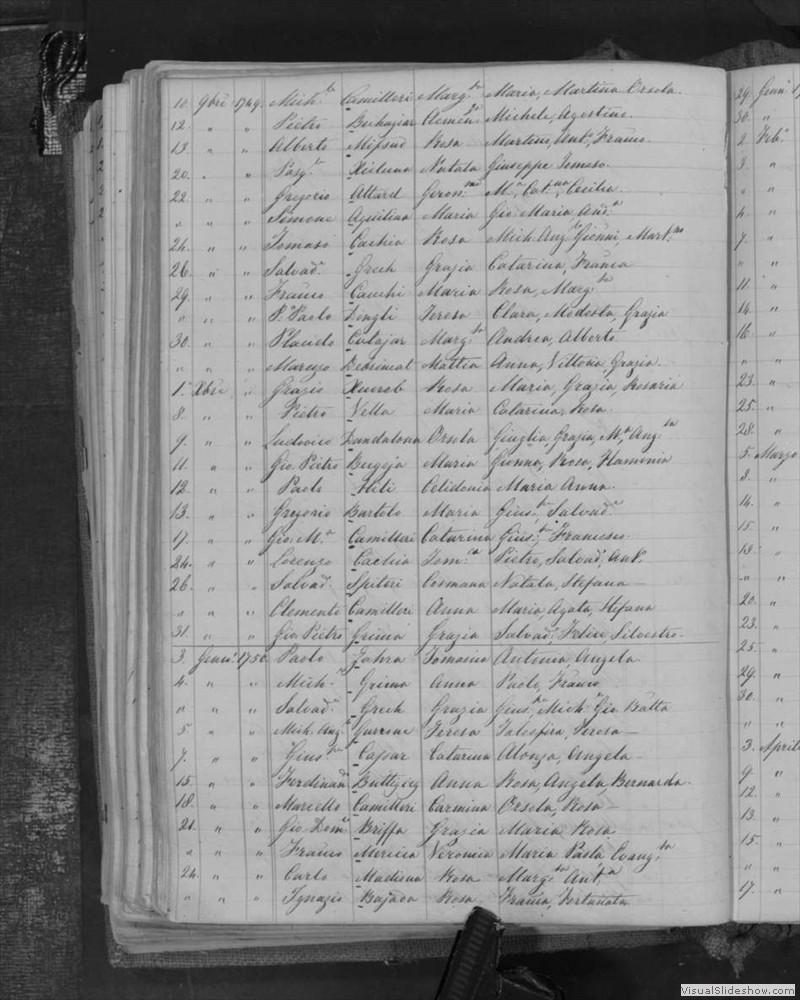 10. 9bri 1749. Mich.le Camilleri Marg.ta Maria, Martina Orsola.
12. " " Pietro Buhagiar Clemen.za Michele, Agostino.
13. " " Alberto Mifsud Rosa Martino, Ant.o, Franco.
20. " " Pasq.le Xicluna Natala Giuseppe Tomaso.
22. " " Gregorio Attard Geron.ma M.a, Cat.na, Cecilia
" " " Simone Aquilina Maria Gio Maria, And.a
24. " " Tomaso Cachia Rosa Mich. Ang.lo Gionni, Mart.no
26. " " Salvad.e Grech Grazia Catarina, Franca
29. " " Franco Cauchi Maria Rosa, Marg.ta
" " " P. Paolo Dingli Teresa Clara, Modesta, Grazia
30. " " Placido Cutajar Marg.ta Andrea, Alberto
" " " Marenzo Mattia Anna, Vittoria, Grazia.
1. Xbri " Grazio Xuereb Rosa Maria, Grazia, Rosaria
8. " " Pietro Vella Maria Catarina, Rosa.
9. " " Ludovico Dandalona Orsola Giuglia, Grazia, M.a, Ang.la
11. " " Gio Pietro Bugeja Maria Gionna, Rosa, Flaminia
12. " " Paolo Hili Celidonia Maria Anna
13. " " Gregorio Bartolo Maria Gius.e, Salvad.e
17. " " Gio. M.a Camilleri Catarina Gius.e, Francesco.
24. " " Lorenzo Cachia Tom.ca Pietro, Salvad.e, Ant.o
26. " " Salvad.e Spiteri Cosmana Natala, Stefana —
" " " Clemente Camilleri Anna Maria, Agata, Stefana
31. " " Gio Pietro Grima Grazia Salvad.e, Felice, Silvestro.
3. Genn.o 1750. Paolo Zahra Tomasia Antonia, Angela
4. " " Mich.e Grima Anna Paolo, Franco
" " " Salvad.e Grech Grazia Gius.e, Mich.e Gio Batta
5. " " Mich. Ang.lo Teresa Teresa —
7. " " Gius.e Caspar Catarina Alonza, Angela —
15. " " Ferdinan.o Buttigieg Anna Rosa, Angela Bernarda.
18. " " Marcello Camilleri Carmina Orsola, Rosa —
21. " " Gio Dom.o Briffa Grazia Maria Rosa
" " " Franco Mercica Veronica Maria Paola Evang.ta
24. " " Carlo Madiona Rosa Marg.ta Ant.a
" " " Ignazio Bajada Rosa Franca, Fortunata
29. Genn.
30. "
2. Feb.
3. "
" "
4. "
7. "
" "
11. "
14. "
16. "
" "
23. "
25. "
28. "
5. Marzo
8. "
14. "
15. "
18. "
" "
20. "
23. "
25. "
29. "
30. "
" "
3. Aprile
9. "
12. "
13. "
15. "
" "
17. "
VisualSlideshow.com